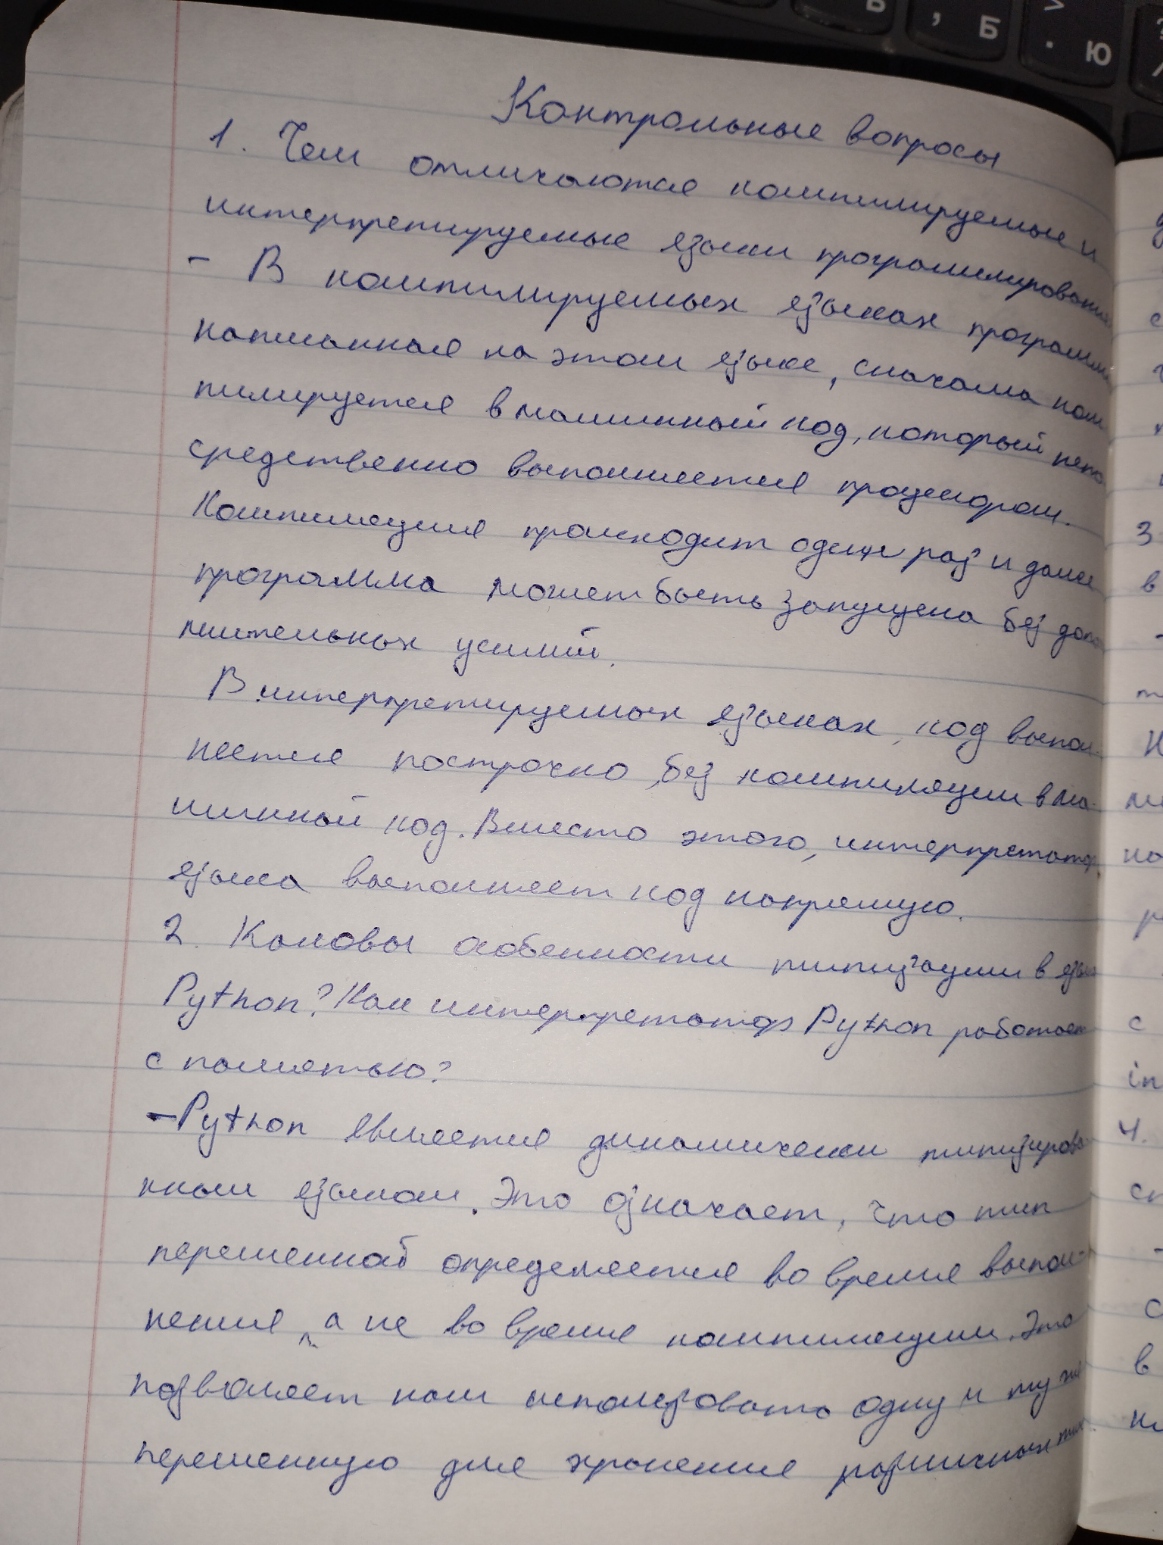 Контрольные вопросы
1. Чем отличаются компилируемые и
интерпретируемые языки программирования
- В компилируемых языках программа
написанная на этом языке, сначала ком
пилируется в машинный код, который непо
средственно выполняется процессором.
Компиляция происходит один раз и далее
программа может быть запущена без допо
лнительных усилий.
В интерпретируемых языках, код выпол-
няется построчно, без компиляции в ма-
шинный код. Вместо этого, интерпретатор
языка выполняет код напрямую.
2. Каковы особенности типизации в языке
Python? Как интерпретатор Python работает
с памятью?
- Python является динамически типизирова
нным языком. Это означает, что тип
переменной определяется во время выпол-
нения, а не во время компиляции. Это
позволяет нам использовать одну и ту же
переменную для хранения различных